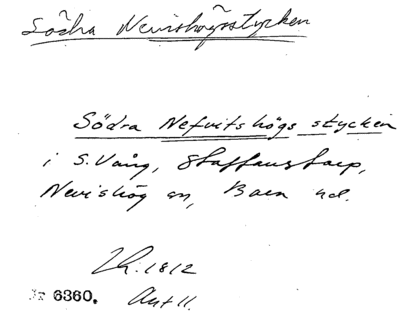 Södra Nevishögsstycken
Södra Nefvitshögs stycken
i S. Vång, Staffanstorp,
Nevishög sn, Bara hd.
LR. 1812
Nr 6360. Akt 11.